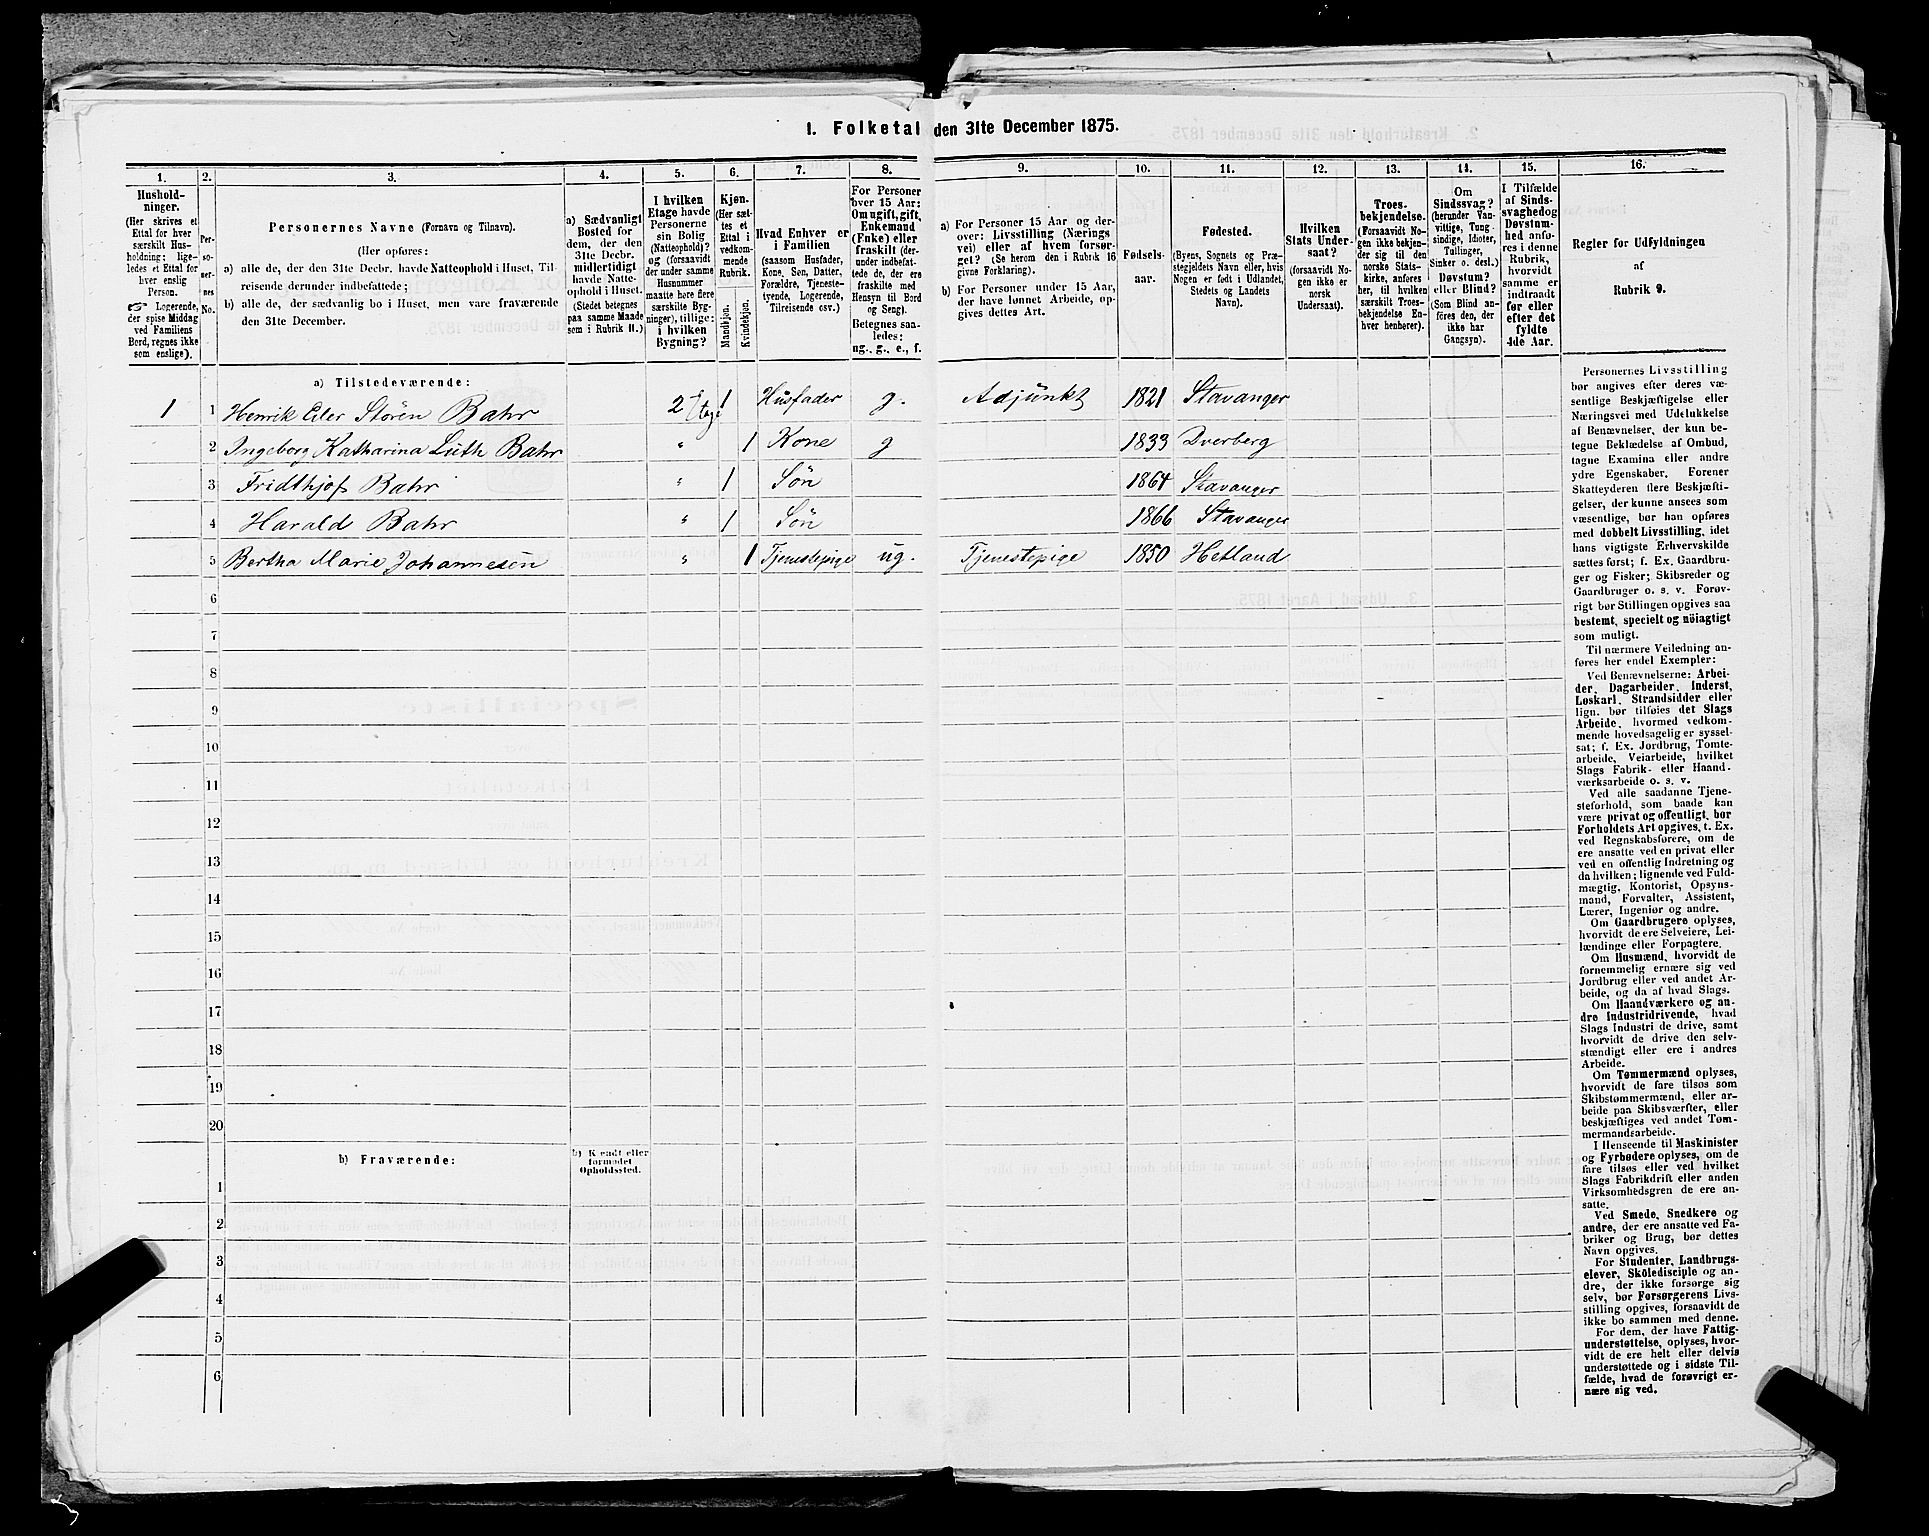 1. Folketal den 31te December 1875.
1. 2. 3. 4. 5. 6. 7. 8. 9. 10. 11. 12. 13. 14. 15. 16.
Hushold-
ninger.
(Her skrives et
Ettal for hver
særskilt Hus-
holdning; lige-
ledes et Ettal for
hver enslig
Person.
Logerende,
der spise Middag
ved Familiens
Bord, regnes ikke
som enslige).
Per-
so-
ner-
nes
No.
Personernes Navne (Fornavn og Tilnavn).
(Her opføres:
a) alle de, der den 31te Decbr. havde Natteophold i Huset, Til-
reisende derunder indbefattede;
b) alle de, der sædvanlig bo i Huset, men vare fraværende
den 31te December.
a) Sædvanligt
Bosted for
dem, der den
31te Decbr.
midlertidigt
havde Natte-
ophold i Huset.
(Stedet betegnes
paa samme Maade
som i Rubrik 11.)
I hvilken
Etage havde
Personerne
sin Bolig
(Natteophold)?
og (forsaavidt
der under samme
Husnummer
maatte høre flere
særskilte Byg-
ninger), tillige:
i hvilken
Bygning?
Kjøn.
(Her sæt-
tes et
Ettal i
vedkom-
mende
Rubrik.
Mandkjøn.
Kvindekjøn.
Hvad Enhver er
i Familien
(saasom Husfader,
Kone, Søn, Datter,
Forældre, Tjeneste-
tyende, Logerende,
Tilreisende osv.)
For Personer
over 15 Aar:
Om ugift, gift,
Enkemand
(Enke) eller
fraskilt (der-
under indbefat-
tede de, der ere
fraskilte med
Hensyn til Bord
og Seng).
Betegnes saa-
ledes:
ug., g., e., f.
a) For Personer 15 Aar og der-
over: Livsstilling (Nærings
vei) eller af hvem forsør-
get? (Se herom den i Rubrik 16
givne Forklaring).
b) For Personer under 15 Aar,
der have lønnet Arbeide, op-
gives dettes Art.
Fødsels-
aar.
Fødested.
(Byens, Sognets og Præ-
stegjeldets Navn eller, hvis
Nogen er født i Udlandet,
Stedets og Landets
Navn).
Hvilken
Stats Under-
saat?
(forsaavidt No-
gen ikke er
norsk
Undersaat).
Troes-
bekjendelse.
(Forsaavidt No-
gen ikke bekjen-
der sig til den
norske Stats-
kirke, anføres
her, til hvilken
særskilt Troes-
bekjendelse En-
hver henhører).
Om
Sindssvag?
(herunder Van-
vittige, Tung-
sindige, Idioter,
Tullinger,
Sinker o. desl.)
Døvstum?
eller Blind?
(Som Blind an-
føres den, der
ikke har
Gangsyn).
I Tilfælde
af Sinds-
svaghed og
Døvstum-
hed anfø-
res i denne
Rubrik,
hvorvidt
samme er
indtraadt
før eller
efter det
fyldte
4de Aar.
Regler for Udfyldningen
af
Rubrik 9.
a) Tilstedeværende:
1 1 Henrik Eiler Stören Bahr 2 Etage 1 Husfader g. Adjünkt 1821 Stavanger
2 Ingeborg Katharina Lüth Bahr " 1 Kone g 1833 Dverberg
3 Fridthjof Bahr " 1 Sön 1864 Stavanger
4 Harald Bahr " 1 Sön 1866 Stavanger
5 Bertha Marie Johannesen " 1 Tjenestepige ug. Tjenestepige 1850 Hetland
6
7
8
9
10
11
12
13
14
15
16
17
18
19
20
b) Fraværende:
b) Kjendt eller
formodet
Opholdssted.
1
2
3
4
5
6
Personernes Livsstilling
bør angives efter deres væ-
sentlige Beskjæftigelse eller
Næringsvei med Udelukkelse
af Benævnelser, der kun be-
tegne Beklædelse af Ombud,
tagne Examina eller andre
ydre Egenskaber. Forener
Skatteyderen flere Beskjæfti-
gelser, der kunne ansees som
væsentlige, bør han opføres
med dobbelt Livsstilling, idet
hans vigtigste Erhvervskilde
sættes først; f. Ex. Gaardbru-
ger og Fisker; Skibsreder og
Gaardbruger o. s. v. Forøv-
rigt bør Stillingen opgives saa
bestemt, specielt og nöiagtigt
som muligt.
Til nærmere Veiledning an-
føres her endel Exempler:
Ved Benævnelserne: Arbei-
der, Dagarbeider, Inderst,
Løskarl, Strandsidder eller
lign. bør tilføies det Slags
Arbeide, hvormed vedkom-
mende hovedsagelig er syssel-
sat; f. Ex. Jordbrug, Tomte-
arbeide, Veiarbeide, hvilket
Slags Fabrik- eller Haand-
værksarbeide o. s. v.
Ved alle saadanne Tjene-
steforhold, som baade kan
være privat og offentligt, bør
Forholdets Art opgives, t. Ex.
ved Regnskabsførere, om de
ere ansatte ved en privat eller
ved en offentlig Indretning og
da hvilken; lignende ved Fuld-
mægtig, Kontorist, Opsyns-
mand, Forvalter, Assistent,
Lærer, Ingeniør og andre.
Om Gaardbrugere oplyses,
hvorvidt de ere Selveiere, Lei-
lændinge eller Forpagtere.
Om Husmænd, hvorvidt de
fornemmelig ernære sig ved
Jordbrug eller ved andet Ar-
beide, og da af hvad Slags.
Om Haandværkere og an-
dre Industridrivende, hvad
Slags Industri de drive, samt
hvorvidt de drive den selv-
stændigt eller ere i andres
Arbeide.
Om Tømmermænd oplyses,
hvorvidt de fare tilsøs som
Skibstømmermænd, eller ar-
beide paa Skibsværfter, eller
beskjæftiges ved andet Tøm-
mermandsarbeide.
I Henseende til Maskinister
og Fyrbødere oplyses, om de
fare tilsøs eller ved hvilket
Slags Fabrikdrift eller anden
Virksomhedsgren de ere an-
satte.
Ved Smede, Snedkere og
andre, der ere ansatte ved Fa-
briker og Brug, bør dettes
Navn opgives.
For Studenter, Landbrugs-
elever, Skoledisciple og an-
dre, der ikke forsørge sig
selv, bør Forsørgerens Livs-
stilling opgives, forsaavidt de
ikke bo sammen med denne.
For dem, der have Fattig-
understøttelse, oplyses, hvor-
vidt de ere helt eller delvis
understøttede og i sidste Til-
fælde, hvad de forøvrigt er-
nære sig ved.